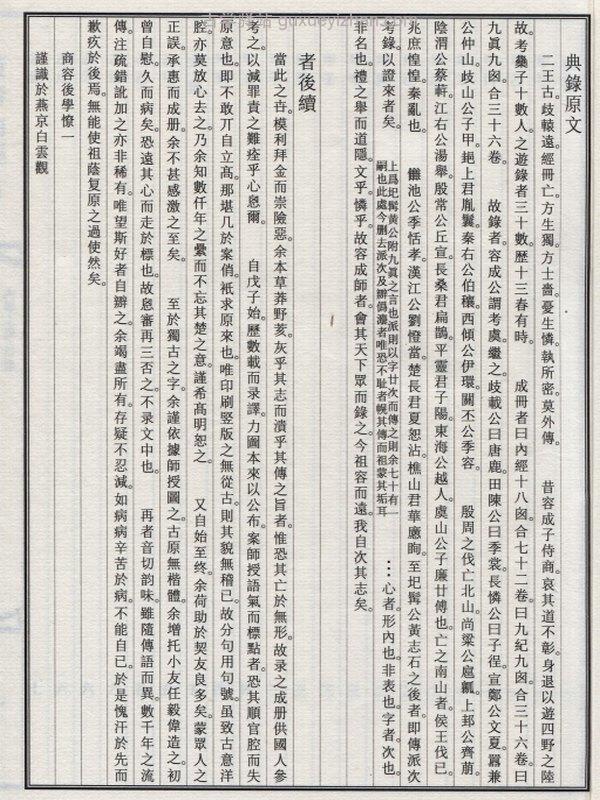 典錄原文
二王古歧轅遠。經冊亡。方生獨。方士嗇。憂生憐。執所密。莫外傳。　昔容成子侍商。哀其道不彰。身退以遊四野之陸
故考彝子十數人之遊錄者三十數。歷十三春有時。　成冊者曰內經十八囪合七十二卷。曰九紀九囪合三十六卷。曰
九眞九囪合三十六卷。　故錄者。容成公謂考虞繼之歧載公曰唐鹿。田陳公曰季裳。長憐公曰子徎。宣鄭公文夏。嚣兼
公仲山。歧山公子甲。上君胤鬟。秦右公伯穰。西傾公伊環。關丕公季容。　殷周之伐亡。北山尚梁公扈瓤。上邽公齊荕。
陰渭公蔡蓒。江右公湯舉。殷常公丘宣。長桑君扁鵲。平靈君子陽。東海公越人。虞山公子廉廿傳也。亡之南山者。侯王伐已。
兆庶惶惶。秦亂也。　池公季恬孝。漢江公劉憕。當楚長君夏恕沾。樵山君華應眴。至圯髯公黃志石之後者。即傳派次
考錄。以證來者矣。　上爲圯髯黃公附九眞之言也。派則以字廿次而傳之。則余七十有一
嗣也。此處今刪去派次及辭僞濂者。唯恐不耻者幌其傳而祖蒙其垢耳　…心者。形內也。非表也。字者。次也。
非名也。禮之舉而道隱。文乎。憐乎。故容成師者。會其天下眾而錄之。今祖容而遠。我自次其志矣。
者後續
當此之世。模利拜金而崇險惡。余本草莽野荄。灰乎其志而潰乎其傳之旨者。惟恐其亡於無形。故录之成册供國人參
考之。以減罪責之難痊乎心恖爾。　自戊子始。歷數載而录譯。力圖本來以公布。案師授語氣而標點者。恐其順官腔而失
原意也。即不敢丌自立髙。那堪几於案俏。衹求原來也。唯印刷竪版之無從古。則其貌無稽已。故分句用句號。虽致古意洋
腔亦莫放心去之。乃余知數仟年之纍而不忘其楚之意。謹希髙明恕之。　又自始至终。余荷助於契友良多矣。蒙眾人之
正誤。承惠而成册。余不甚感激之至矣。　至於獨古之字。余謹依據師授圖之。古原無楷體。余增托小友任毅偉造之。初
曾自慰。久而病矣。恐遠其心而走於標也。故恖審再三否之。不录文中也。　再者音切韵味。雖隨傳語而異。數千年之流
傳注疏錯訛加之亦非稀有。唯望斯好者自辯之。余竭盡所有。存疑不忍减。如病病辛苦於病。不能自已。於是愧汗於先而
歉疚於後焉。無能使祖蔭复原之過使然矣。
商容後學憭一
謹識於燕京白雲觀